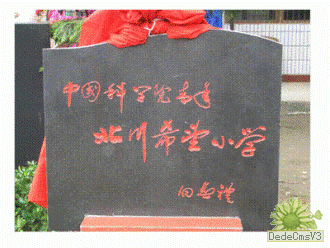 中国科学院青年
北川希望小学
白春礼
DedeCmsV3